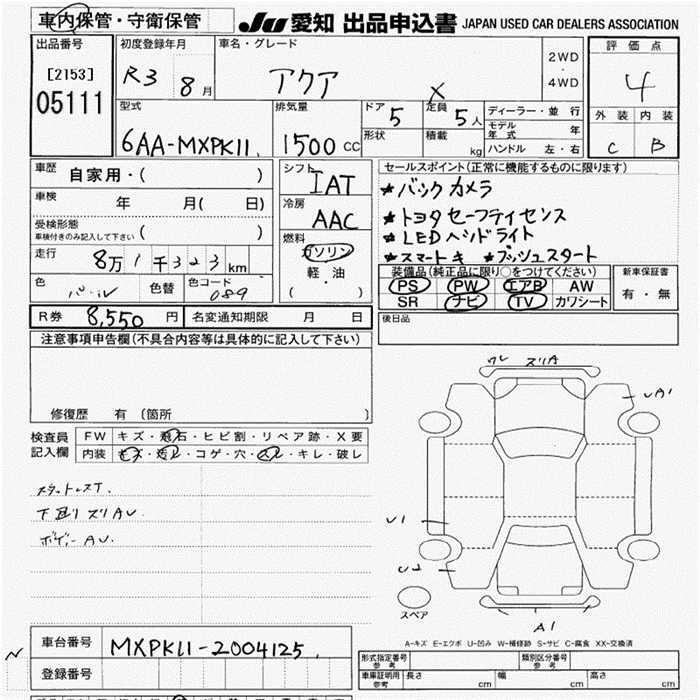 車内保管・守衛保管
JU 愛知 出品申込書 JAPAN USED CAR DEALERS ASSOCIATION
出品番号
[2153]
05111
初度登録年月
R3 8月
車名・グレード
アクア X
2WD
・
4WD
評価点
4
外装 内装
C B
型式
6AA-MXPK11
排気量
1500 CC
ドア 5
形状
定員 5人
積載 kg
ディーラー・並行
モデル年式 年
ハンドル 左・右
車歴 自家用・( )
車検 年 月( 日)
受検形態
車検付きのみ記入して下さい ( )
走行 8万1千323km
色 パール 色替 色コード 089
シフト IAT
冷房 AAC
燃料
ガソリン
軽・油
( ・ )
セールスポイント(正常に機能するものに限ります)
★バックカメラ
★トヨタセーフティセンス
★LEDヘッドライト
★スマートキ ★プッシュスタート
装備品(純正品に限り○をつけてください)
PS PW エアB AW
SR ナビ TV カワシート
新車保証書
有・無
R券 8,550円 名変通知期限 月 日
後日品
注意事項申告欄(不具合内容等は具体的に記入して下さい)
修復歴 有(箇所 )
検査員
記入欄
FW キズ・飛石・ヒビ割・リペア跡・X要
内装 キズ・汚レ・コゲ・穴・スレ・キレ・破レ
スタットレスT.
下廻りスリAU.
ボデーAU.
ワレ スリA
UA1
U1
U2
A1
スペア
A-キズ E-エクボ U-凹み W-補修跡 S-サビ C-腐食 XX-交換済
車台番号 MXPK11-2004125
登録番号
型式指定番号
参考
類別区分番号
参考
車庫証明用
参考
長さ cm 幅 cm 高さ cm